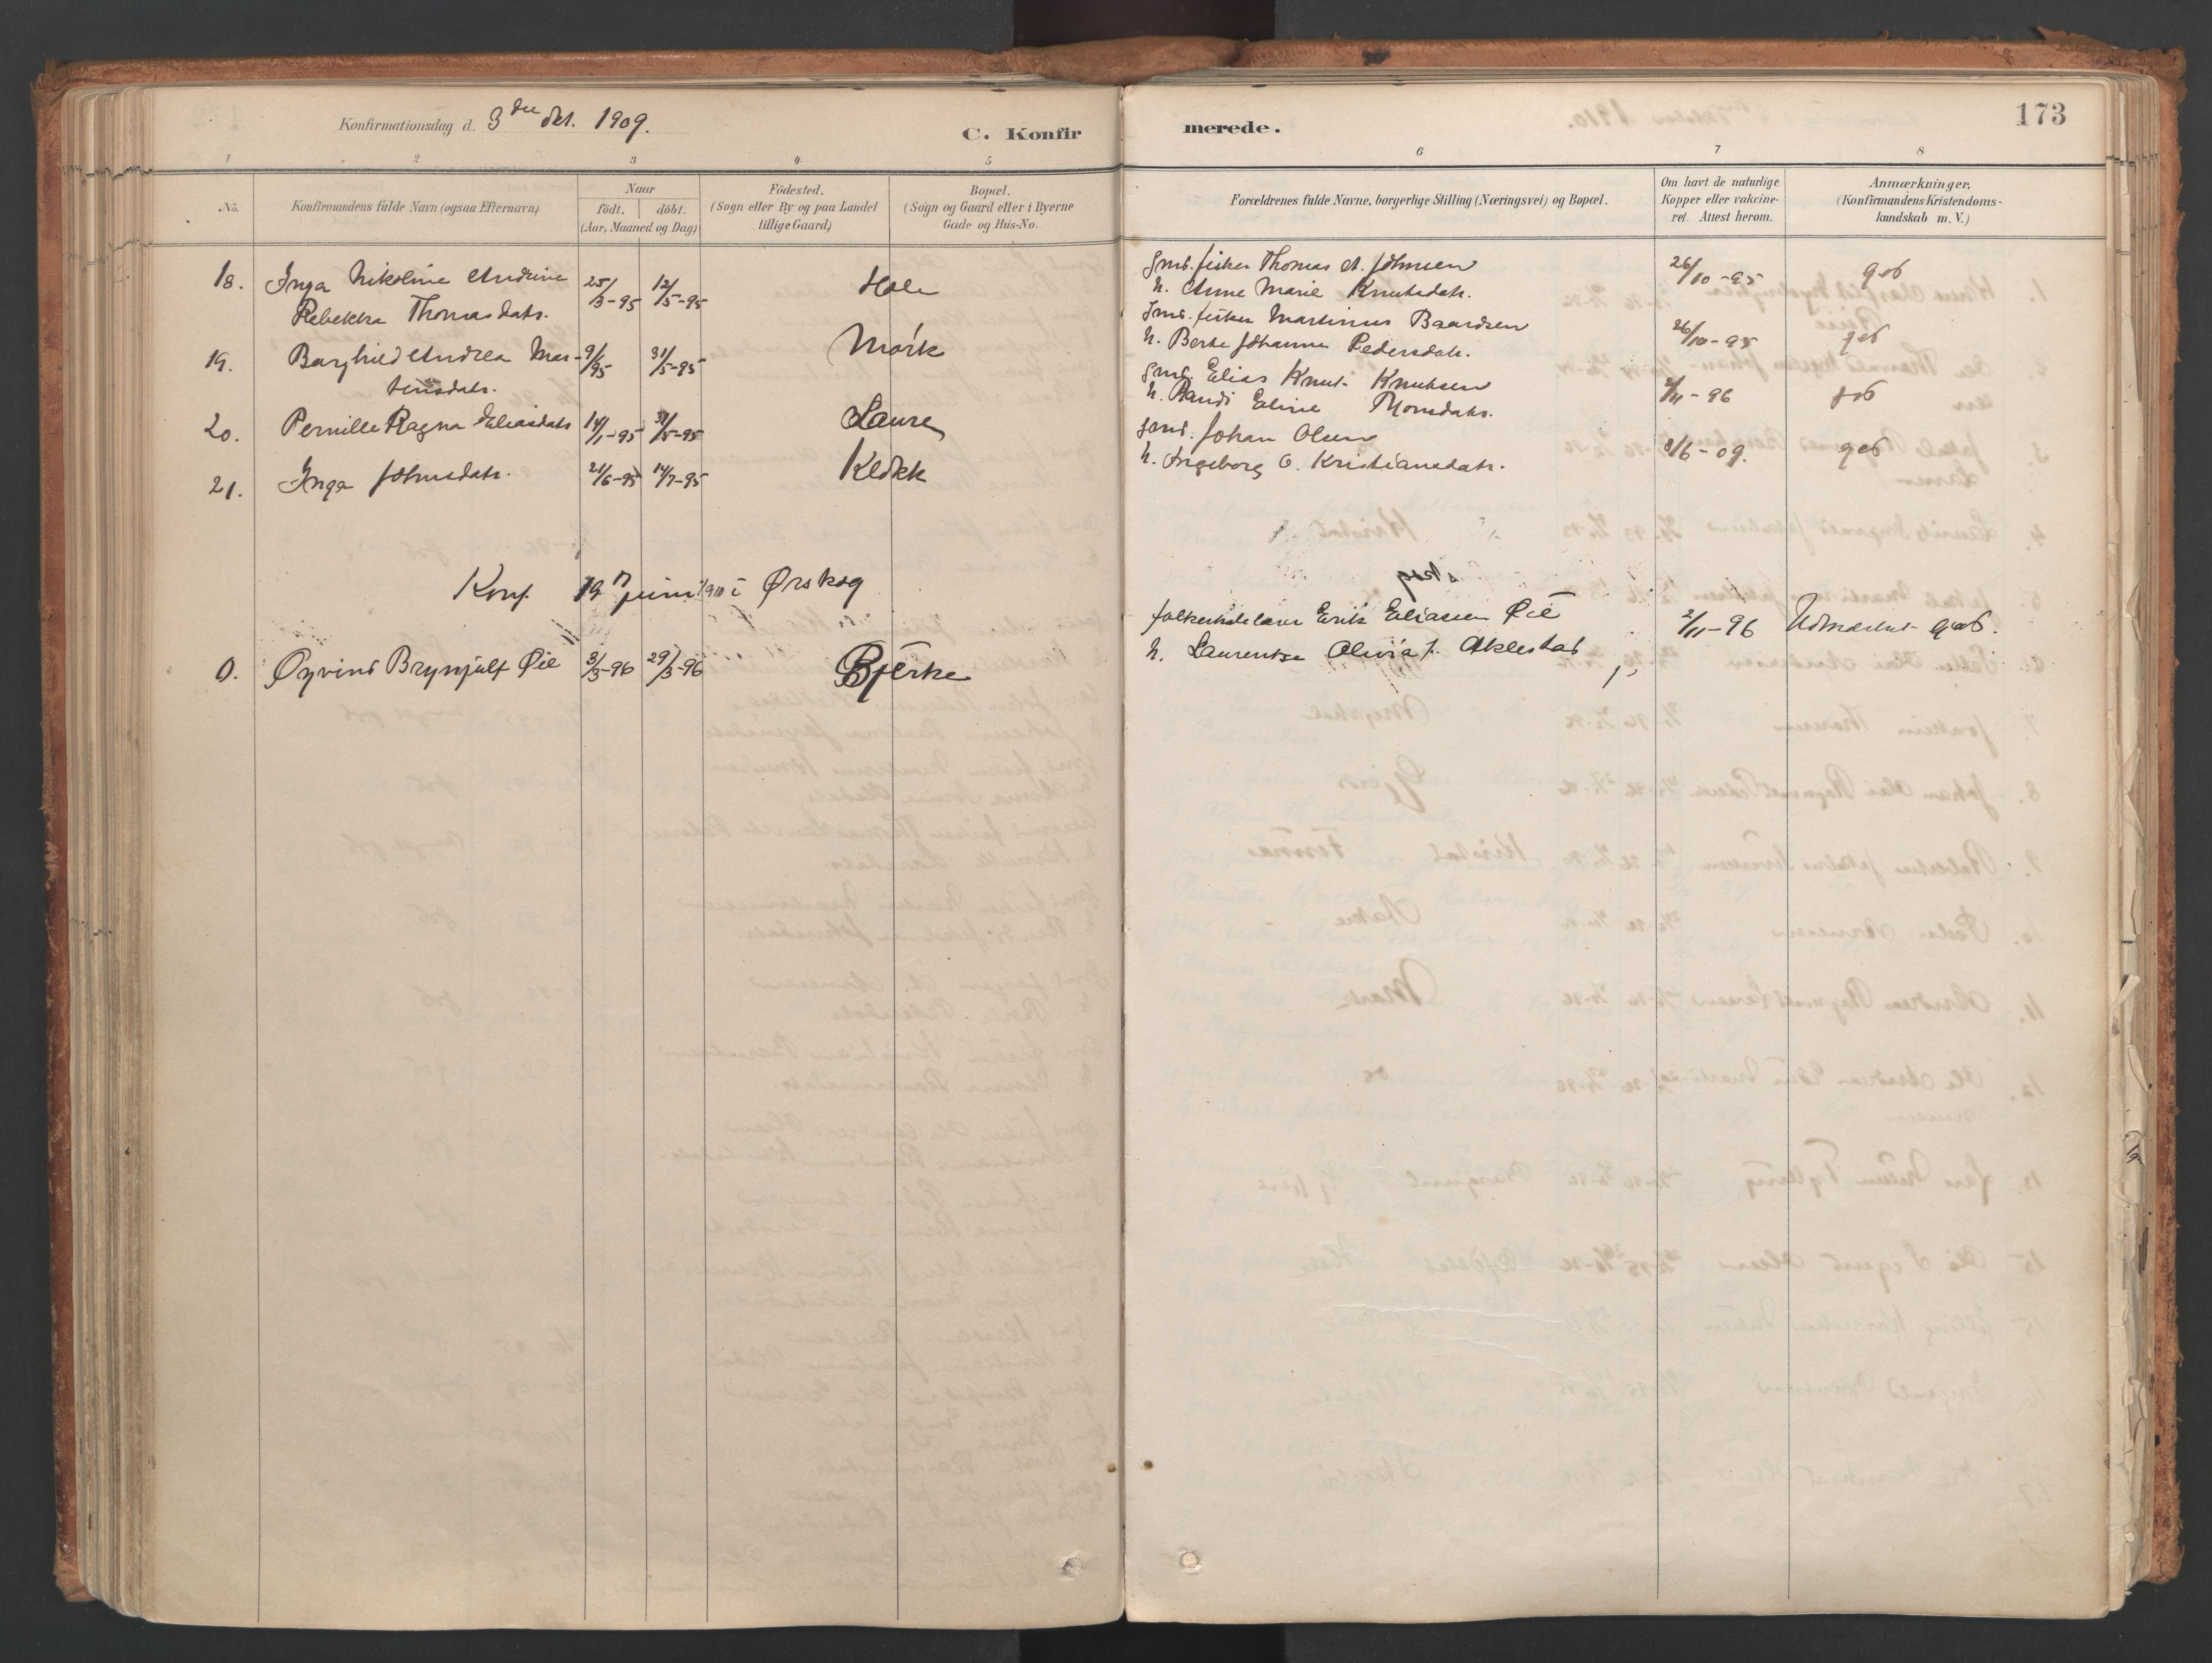 Konfirmationsdag d. 3die Okt. 1909.
C. Konfir
merede.
173
1 2 3 4 5 6 7 8
No.
Konfirmandens fulde Navn (ogsaa Efternavn)
Naar
födt. döbt.
(Aar, Maaned og Dag)
Födested.
(Sogn eller By og paa Landet
tillige Gaard)
Bopæl.
(Sogn og Gaard eller i Byerne
Gade og Hus-No.
Forældrenes fulde Navne, borgerlige Stilling (Næringsvei) og Bopæl.
Om havt de naturlige
Kopper eller vakcine-
ret. Attest herom.
Anmærkninger.
(Konfirmandens Kristendoms-
kundskab m. V.)
18. Inga Nikoline Andrine 25/3-95 12/5-95 Hole
Rebekka Thomasdatr.
Gmd. fisker Thomas A. Johnsen 26/10-95 god
h. Anne Marie Knutsdatr.
19. Borghild Andrea Mar- 9/ 95 31/5-95 Mork
tinsdatr.
Gmd. fisker Martinus Baardsen 26/10-95 god
h. Berte Johanne Pedersdatr.
20. Pernille Ragna Eliasdatr 14/1-95 31/5-95 Laure
Gmd. Elias Knut. Knutsen 2/11-96 god
h. Randi Eline Monsdatr.
21. Inga Johnsdatr. 21/6-95 14/7-95 Klokk
Gmd. Johan Olsen 8/6-09. god
h. Ingeborg O. Kristiansdatr.
Konf. 19 juni 1910 i Ørskog
0. Øyvind Brynjulf Øie 3/3-96 29/3-96 Bjerke
Erik Eliassen Øie 2/11-96 Udmærket god.
h. Laurentse Olivia f. Aklestad